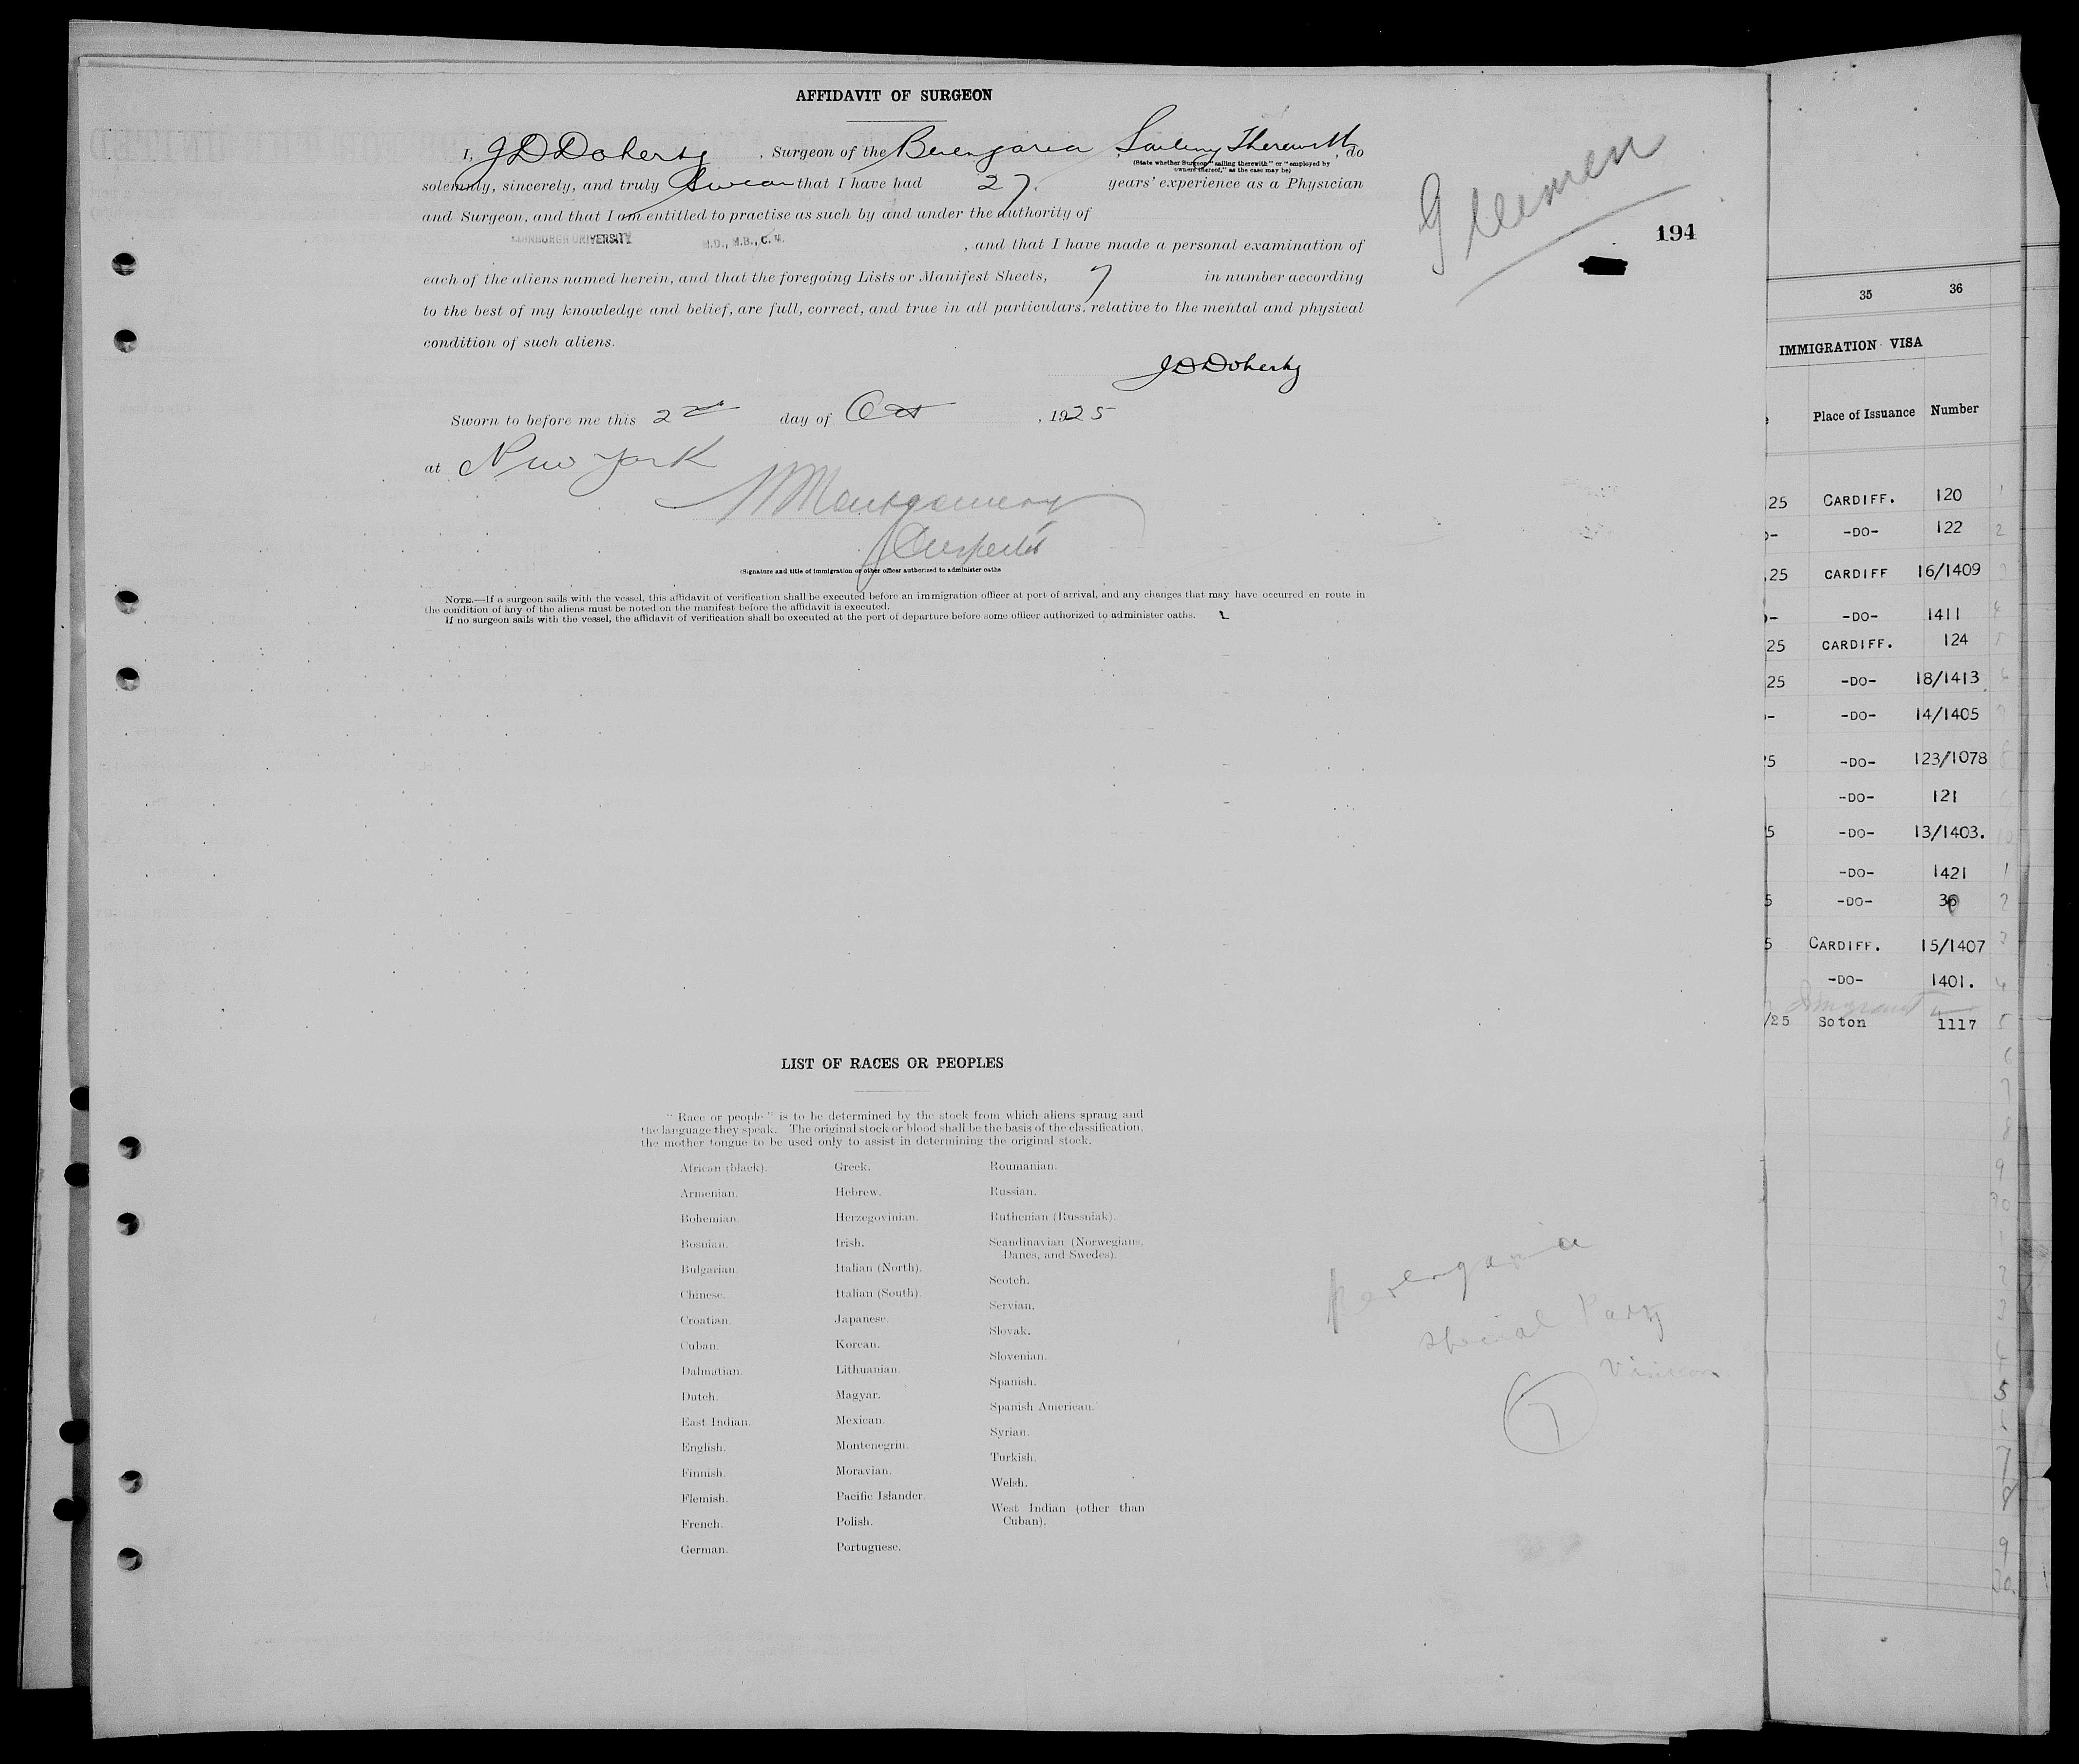 AFFIDAVIT OF SURGEON
I, J D Doherty, Surgeon of the Berengaria, Sailing Therewith, do
(State whether Surgeon "sailing therewith" or "employed by
owners thereof," as the case may be)
solemnly, sincerely, and truly Swear that I have had 27 years' experience as a Physician
and Surgeon, and that I am entitled to practise as such by and under the authority of
EDINBURGH UNIVERSITY M.D., M.B., C.M., and that I have made a personal examination of
each of the aliens named herein, and that the foregoing Lists or Manifest Sheets, 7 in number according
to the best of my knowledge and belief, are full, correct, and true in all particulars, relative to the mental and physical
condition of such aliens.
J D Doherty
Sworn to before me this 2nd day of Oct, 1925
at New York
Montgomery
Inspector
(Signature and title of immigration or other officer authorized to administer oaths
NOTE.—If a surgeon sails with the vessel, this affidavit of verification shall be executed before an immigration officer at port of arrival, and any changes that may have occurred en route in
the condition of any of the aliens must be noted on the manifest before the affidavit is executed.
If no surgeon sails with the vessel, the affidavit of verification shall be executed at the port of departure before some officer authorized to administer oaths.
Gleemen
194
LIST OF RACES OR PEOPLES
"Race or people" is to be determined by the stock from which aliens sprang and
the language they speak. The original stock or blood shall be the basis of the classification,
the mother tongue to be used only to assist in determining the original stock.
African (black).
Armenian.
Bohemian.
Bosnian.
Bulgarian.
Chinese.
Croatian.
Cuban.
Dalmatian.
Dutch.
East Indian.
English.
Finnish.
Flemish.
French.
German.
Greek.
Hebrew.
Herzegovinian.
Irish.
Italian (North).
Italian (South).
Japanese.
Korean.
Lithuanian.
Magyar.
Mexican.
Montenegrin.
Moravian.
Pacific Islander.
Polish.
Portuguese.
Roumanian.
Russian.
Ruthenian (Russniak).
Scandinavian (Norwegians,
Danes, and Swedes).
Scotch.
Servian.
Slovak.
Slovenian.
Spanish.
Spanish American.
Syrian.
Turkish.
Welsh.
West Indian (other than
Cuban).
Berengaria
Special Party
35 36
IMMIGRATION VISA
Place of Issuance Number
25 CARDIFF. 120 1
-DO- 122 2
25 CARDIFF 16/1409 3
-DO- 1411 4
25 CARDIFF. 124 5
25 -DO- 18/1413 6
-DO- 14/1405 7
25 -DO- 123/1078 8
-DO- 121 9
5 -DO- 13/1403. 10
-DO- 1421 1
5 -DO- 36 2
5 CARDIFF. 15/1407 3
-DO- 1401. 4
Immigrant
/25 Soton 1117 5
6
7
8
9
20
1
2
3
4
5
6
7
8
9
30